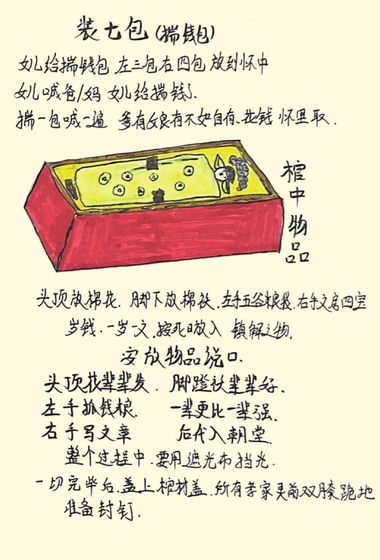 装七包(揣钱包)
女儿给揣钱包 左三包右四包 放到怀中
女儿喊爸/妈 女儿给揣钱了
揣一包喊一遍 爹有娘有不如自有 花钱怀里取.
棺中物品
头顶放棉花. 脚下放棉 左手五谷粮 右手文房四宝
岁钱. 一岁一文, 按死 放入 镇 之物.
安放物品说口
头顶花辈辈发 脚蹬 辈辈好.
左手抓钱粮 一辈更比一辈强.
右手写文章 后代入朝堂.
整个过程中.要用遮光布挡光.
一切完毕后.盖上棺材盖.所有孝家灵前双膝跪地
准备封钉.